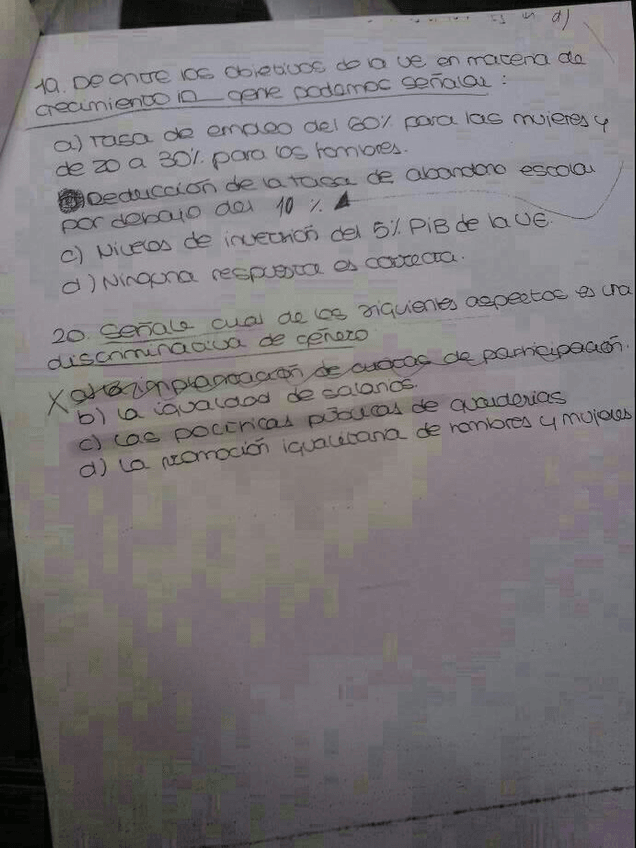 d)
19. De entre los objetivos de la UE en materia de
crecimiento podemos señalar:
a) Tasa de empleo del 60% para las mujeres y
de 20 a 30% para los hombres.
Reducción de la tasa de abandono escolar
por debajo del 10%
c) Niveles de inversión del 5% PiB de la UE.
d) Ninguna respuesta es correcta.
20. Señale cual de los siguientes aspectos es una
discriminativa de género
X a) La implantación de cuotas de participación.
b) La igualdad de salarios.
c) Las políticas públicas de guarderías
d) La promoción igualitaria de hombres y mujeres